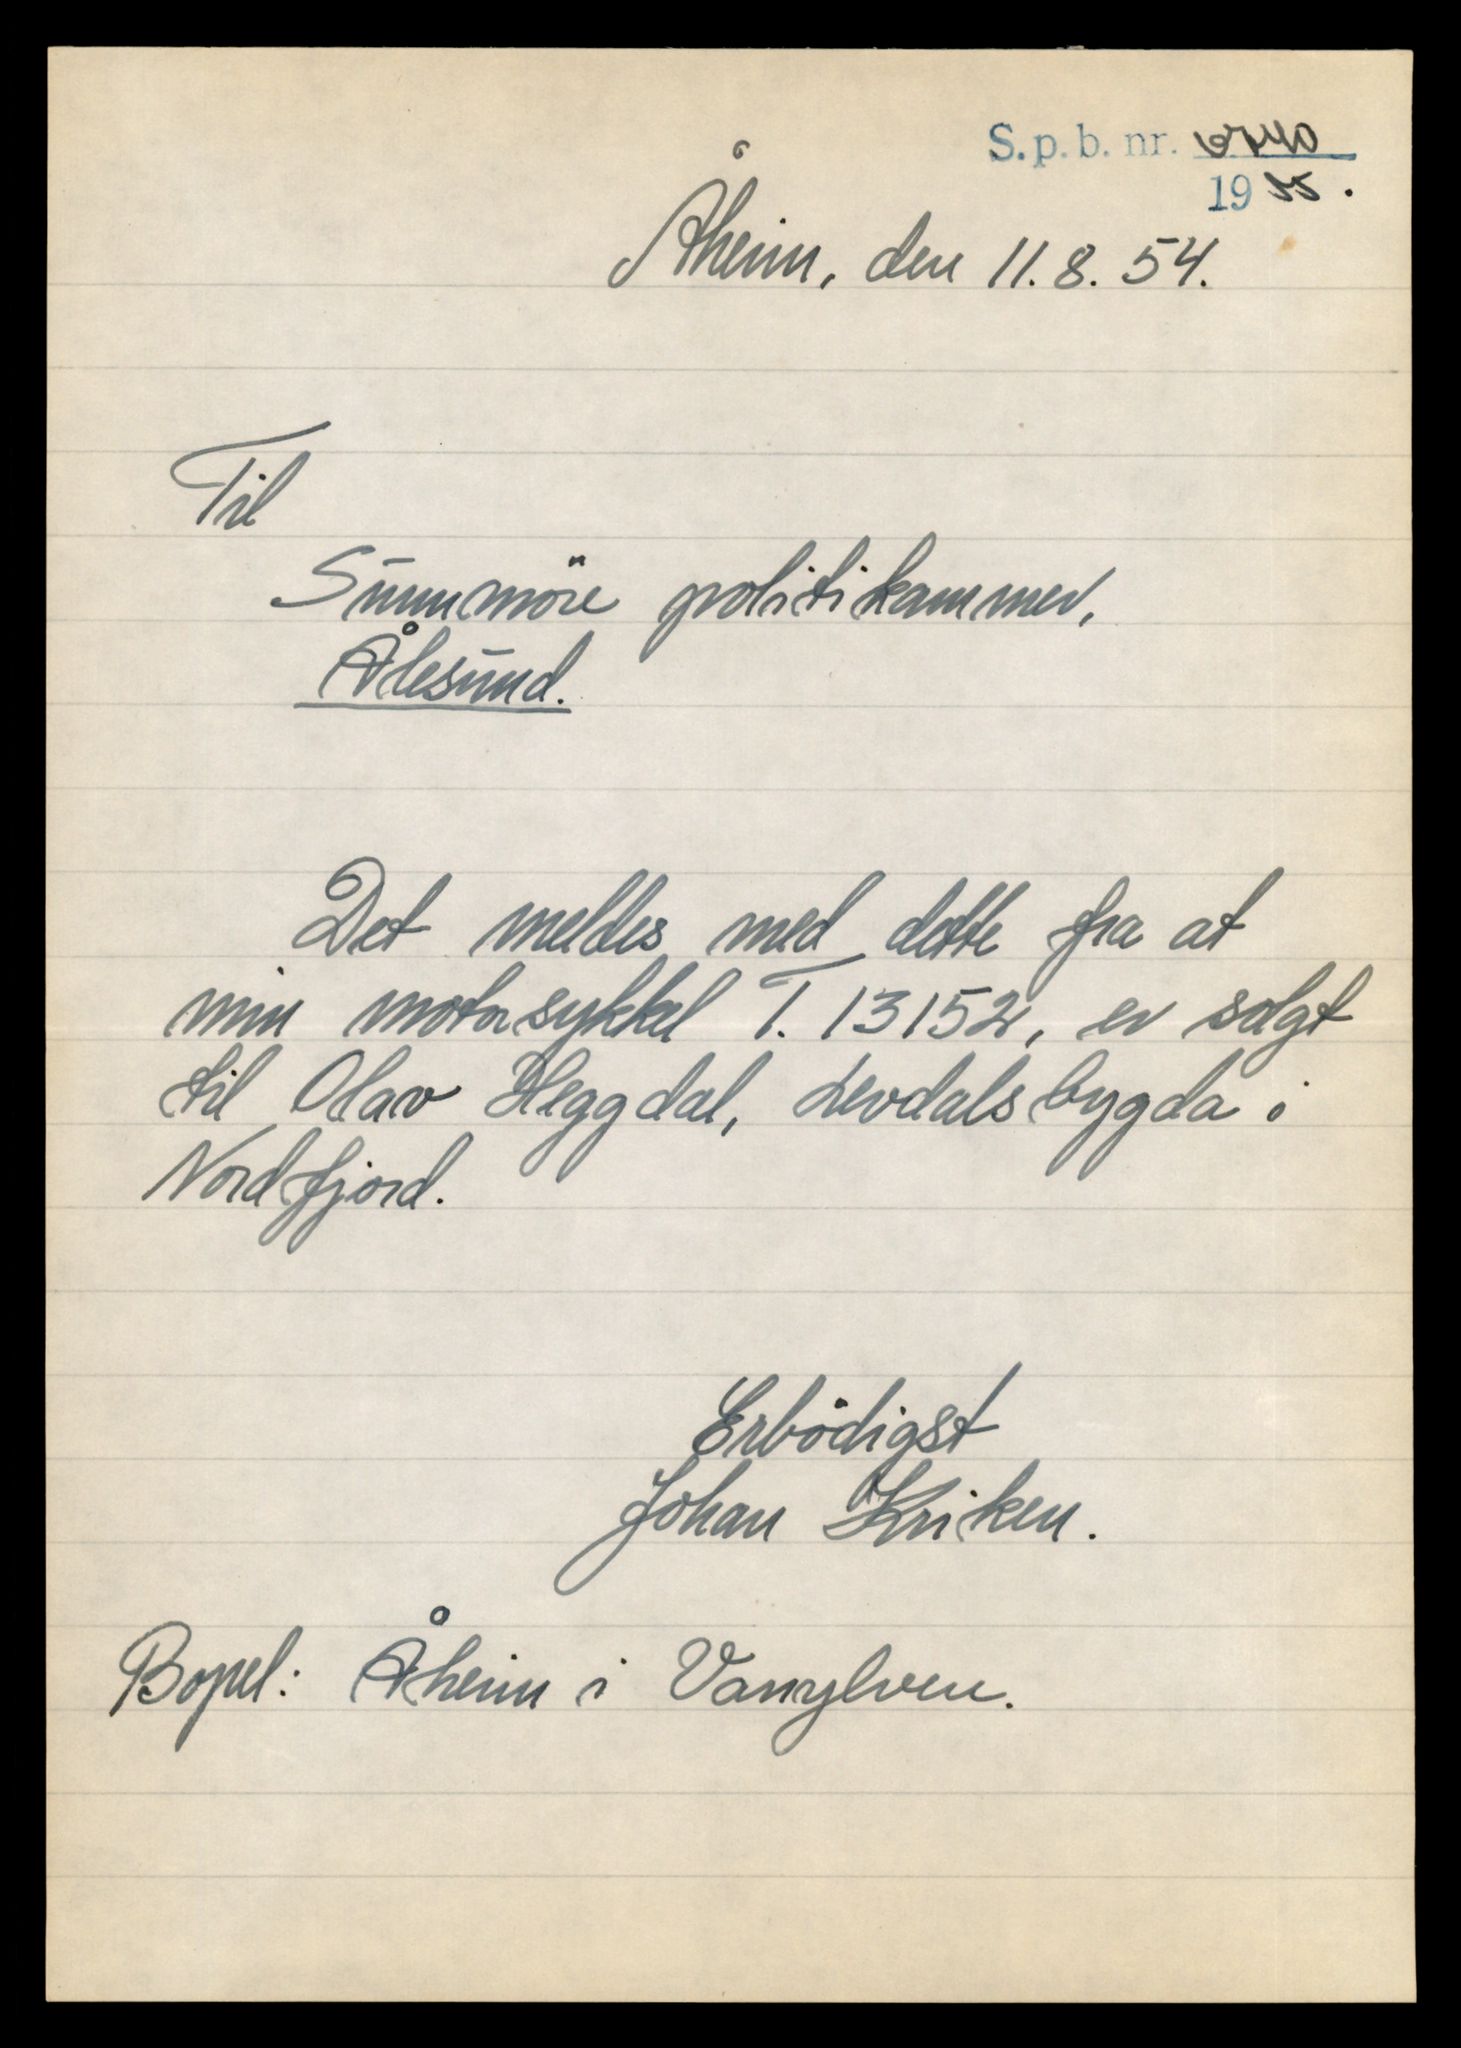 S.p.b. nr.
19 55.
Åheim, den 11.8.54.
Til
Sunnmöre politikammer,
Ålesund.
Det meldes med dette fra at
min motorsykkel T. 13152, er solgt
til Olav Heggdal, Levdalsbygda i
Nordfjord.
Erbödigst
Johan Kriken.
Bopel: Åheim i Vanylven.